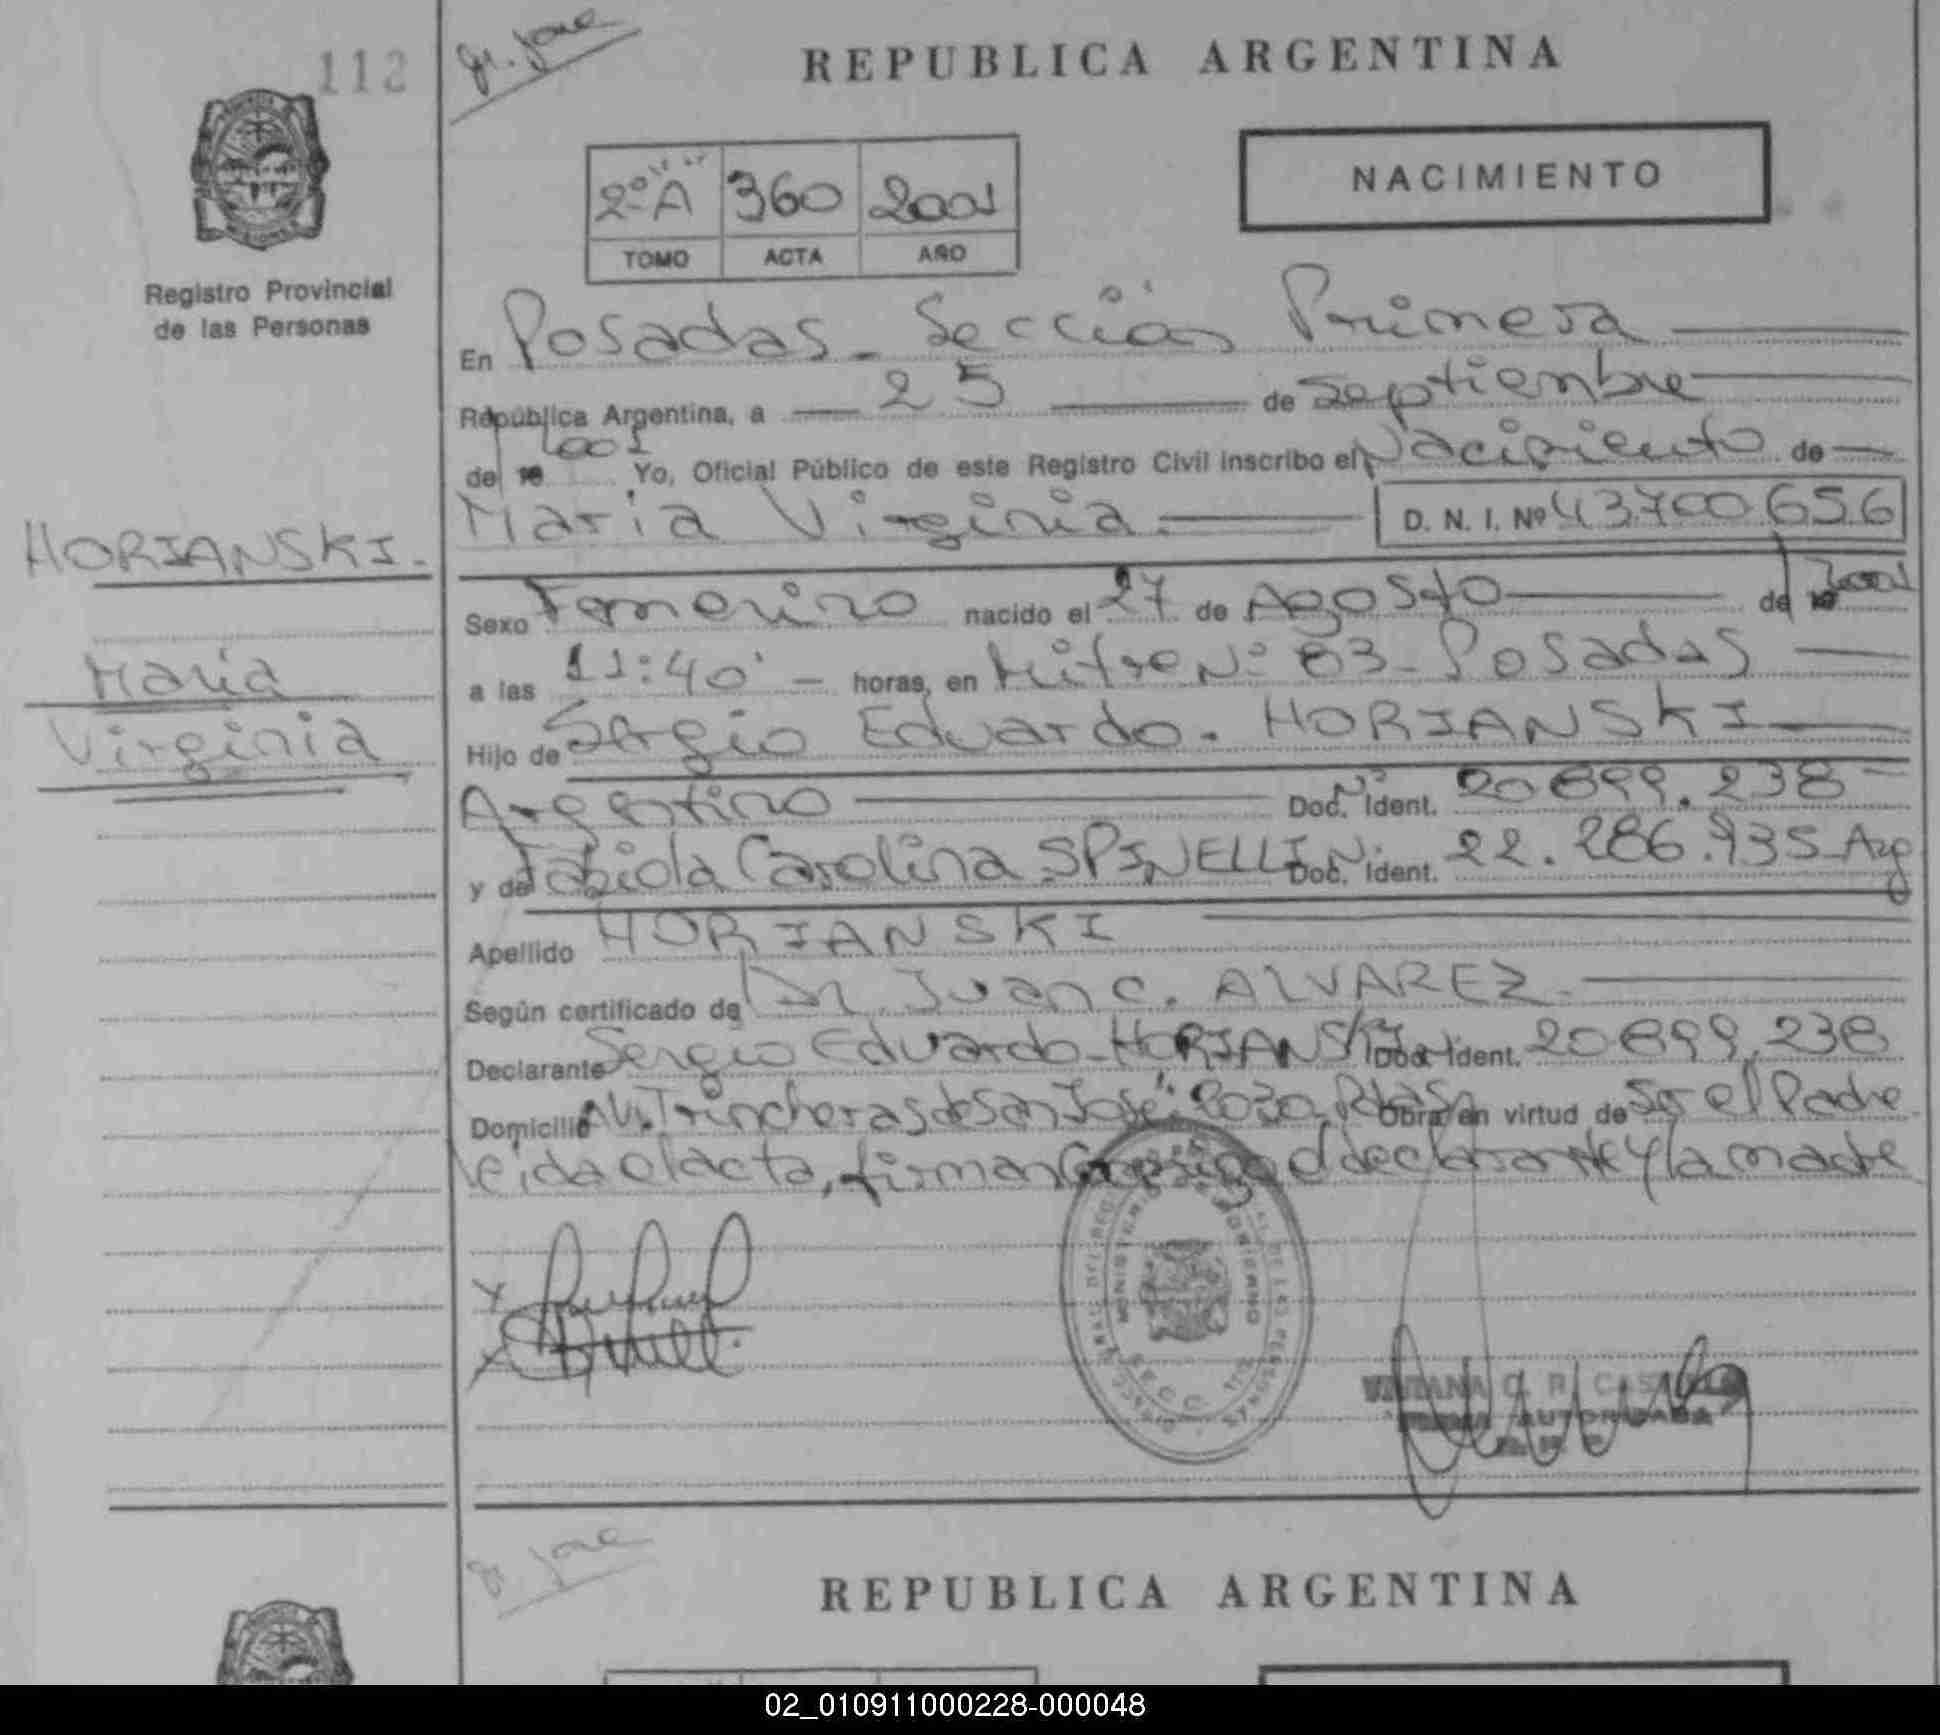 112
gr. Jone
REPUBLICA ARGENTINA
NACIMIENTO
2º A 360 2001
TOMO ACTA AÑO
Registro Provincial
de las Personas
En Posadas - Sección Primera
República Argentina, a 25 de Septiembre
de 2001 Yo, Oficial Público de este Registro Civil inscribo el Nacimiento de
Maria Virginia. D. N. I. Nº 43.700656
HORIANSKI.
Maria
Virginia
Sexo Femenino nacido el 27 de Agosto de 2001
a las 11:40' - horas, en Mitre Nº 83 - Posadas
Hijo de Sergio Eduardo. HORIANSKI
Argentino Doc. Nº Ident. 20899.238
y de Fabiola Carolina SPINELLI Doc. Nº Ident. 22.286.935 Arg
Apellido HORIANSKI
Según certificado de Dr. Juan C. ALVAREZ
Declarante Sergio Eduardo - HORIANSKI Doc. Ident. 20899.238
Domicilio Av. Trincheras de San José 2030 Pdas. Obra en virtud de Ser el Padre
leida el acta, firman Conmigo el declarante y la madre
MINISTERIO DE GOBIERNO
SECC. 1ra
VIVIANA C. R.
FIRMA AUTORIZADA
gr. Jone
REPUBLICA ARGENTINA
02_010911000228-000048